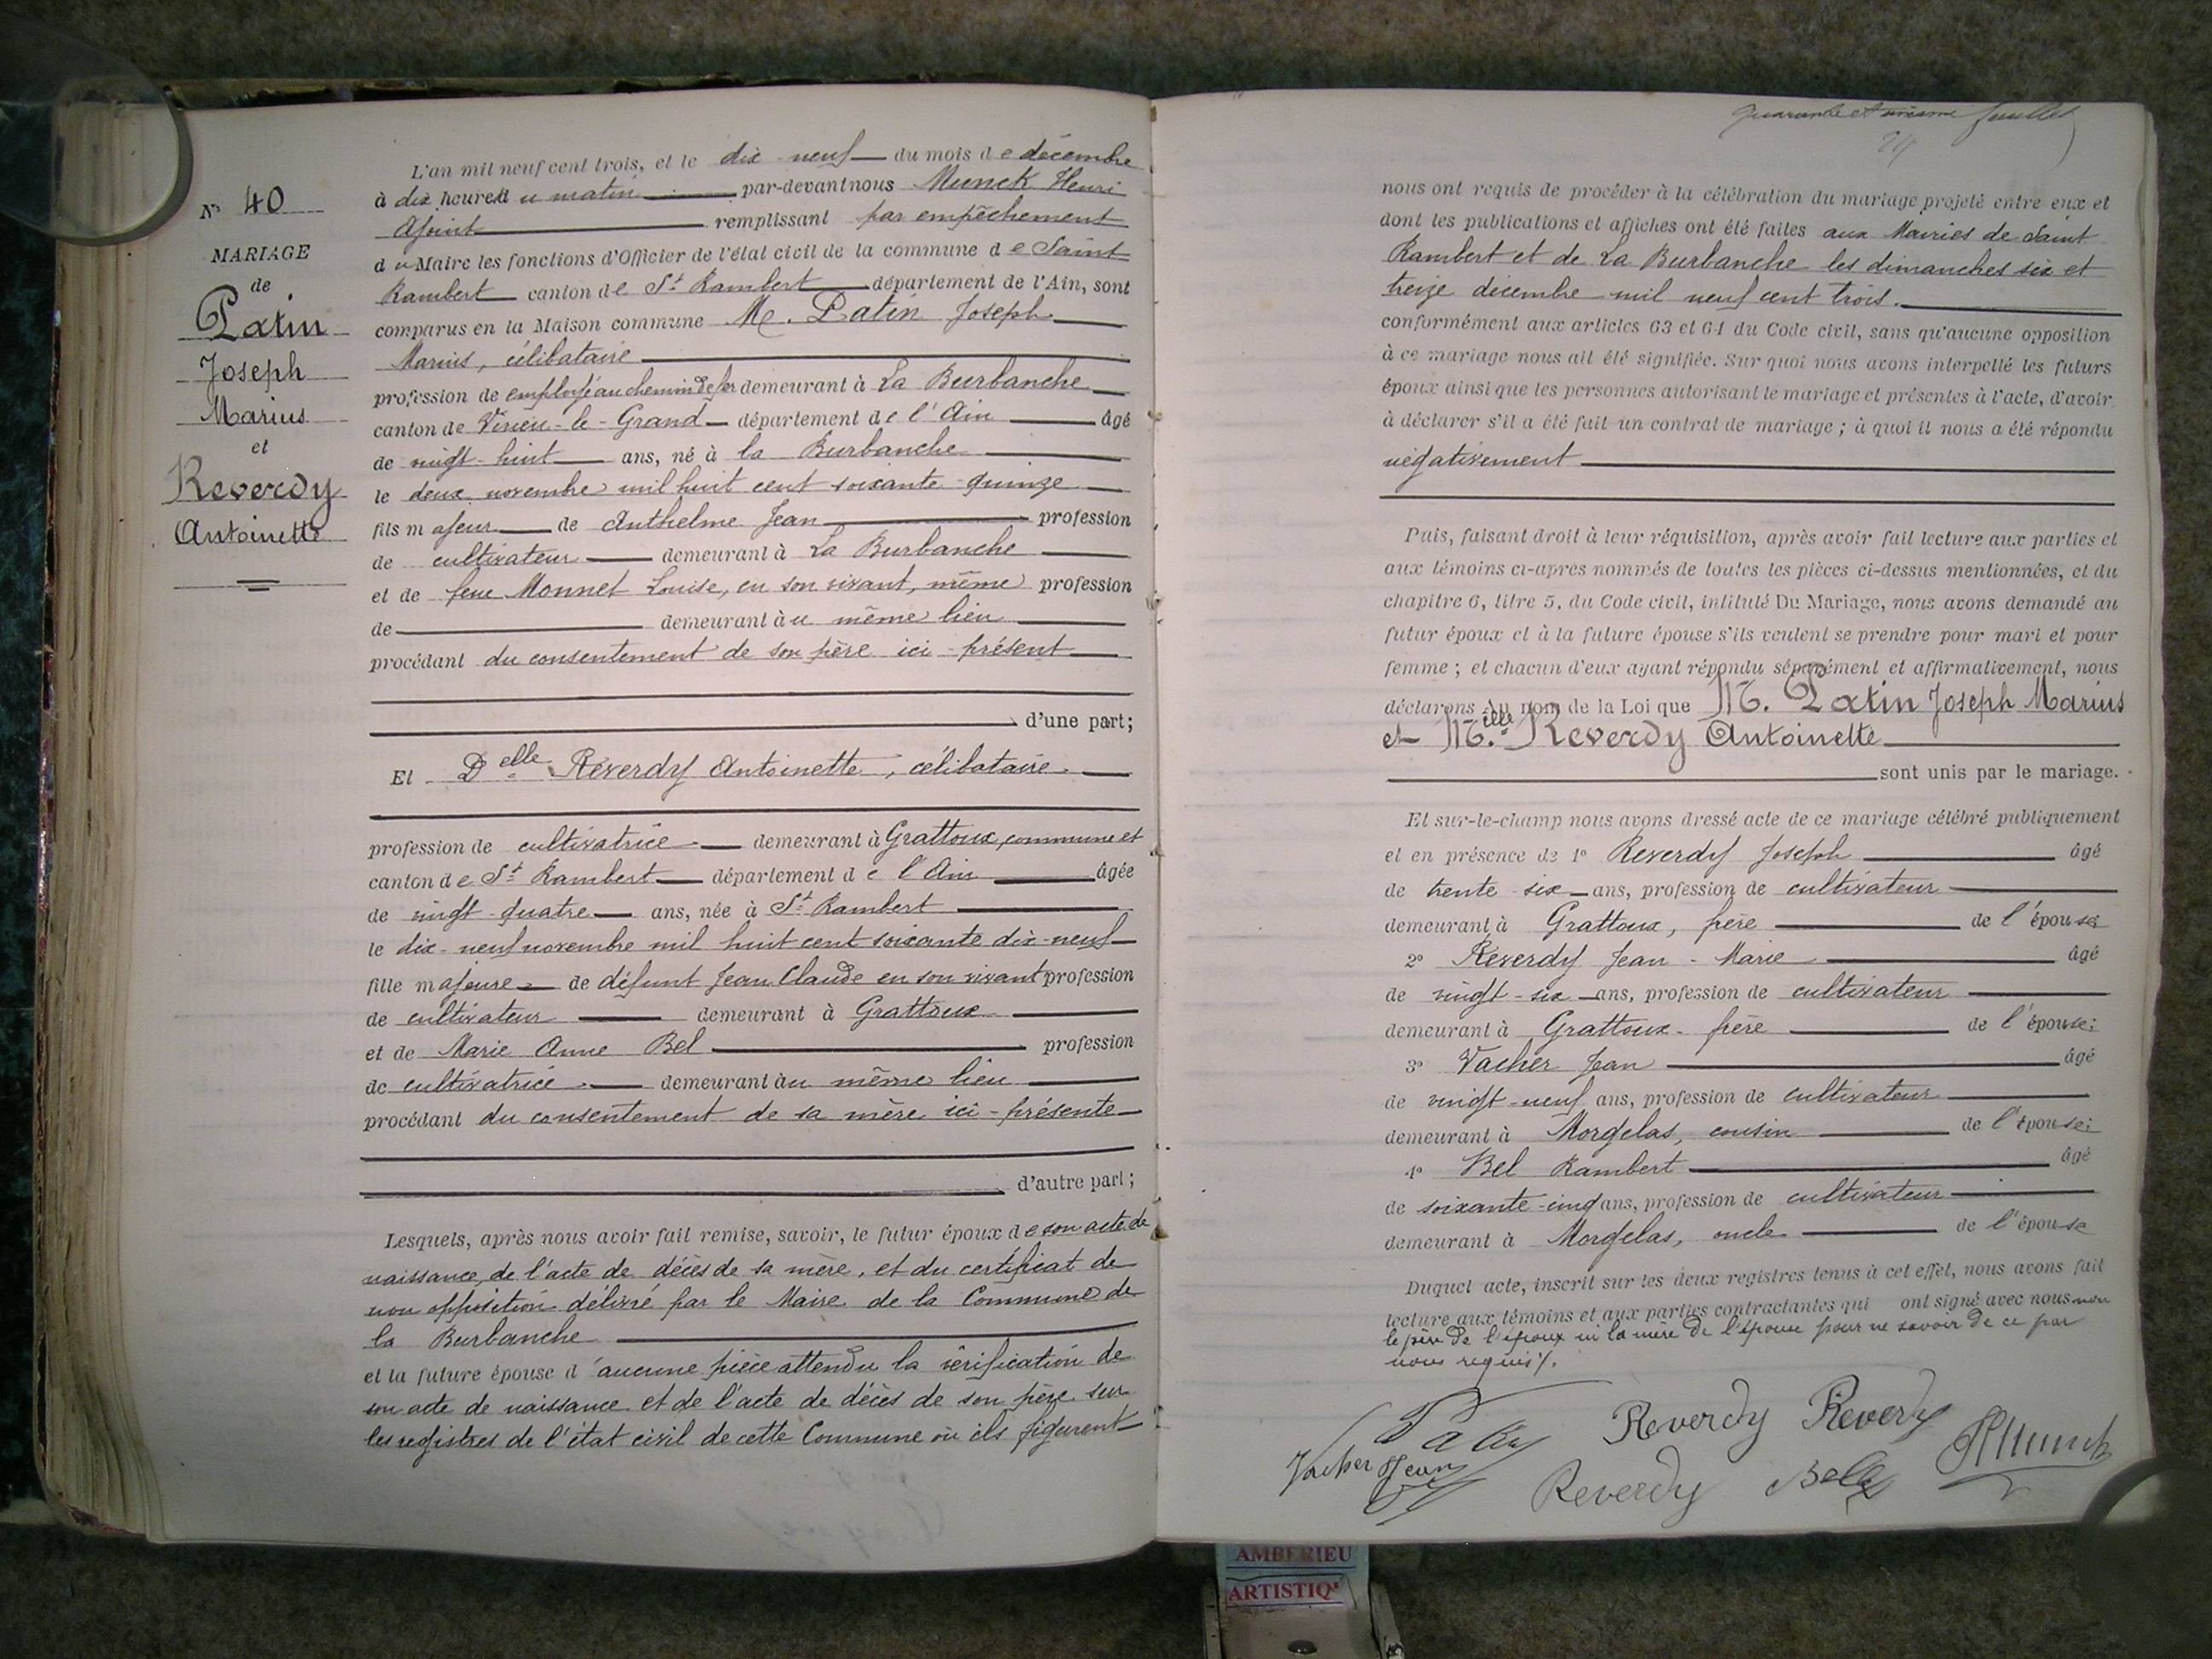 N° 40
MARIAGE
de
Patin
Joseph
Marius
et
Reverdy
Antoinette
L'an mil neuf cent trois, et le dix neuf du mois de décembre
à dix heures du matin par-devant nous Munck Henri
Ajoint remplissant par empêchement
du Maire les fonctions d'Officier de l'état civil de la commune de Saint
Rambert canton de St Rambert département de l'Ain, sont
comparus en la Maison commune M. Patin Joseph
Marius, célibataire
profession de employé au chemin de fer demeurant à La Burbanche
canton de Virieu-le-Grand département de l'Ain âgé
de vingt-huit ans, né à la Burbanche
le deux novembre mil huit cent soixante-quinze
fils majeur de Anthelme Jean profession
de cultivateur demeurant à La Burbanche
et de feue Monnet Louise, en son vivant, même profession
de demeurant au même lieu
procédant du consentement de son père ici-présent
d'une part;
Et Delle Réverdy Antoinette, célibataire
profession de cultivatrice demeurant à Grattoux, commune et
canton de St Rambert département de l'Ain âgée
de vingt-quatre ans, née à St Rambert
le dix-neuf novembre mil huit cent soixante dix-neuf
fille majeure de défunt Jean Claude en son vivant profession
de cultivateur demeurant à Grattoux
et de Marie Anne Bel profession
de cultivatrice demeurant au même lieu
procédant du consentement de sa mère ici-présente
d'autre part;
Lesquels, après nous avoir fait remise, savoir, le futur époux de son acte de
naissance, de l'acte de décès de sa mère, et du certificat de
non opposition délivré par le Maire de la Commune de
la Burbanche
et la future épouse d'aucune pièce attendu la vérification de
son acte de naissance et de l'acte de décès de son père sur
les registres de l'état civil de cette Commune où ils figurent
quarante et unième feuillet
nous ont requis de procéder à la célébration du mariage projeté entre eux et
dont les publications et affiches ont été faites aux Mairies de Saint
Rambert et de La Burbanche les dimanches six et
treize décembre mil neuf cent trois.
conformément aux articles 63 et 64 du Code civil, sans qu'aucune opposition
à ce mariage nous ait été signifiée. Sur quoi nous avons interpellé les futurs
époux ainsi que les personnes autorisant le mariage et présentes à l'acte, d'avoir
à déclarer s'il a été fait un contrat de mariage; à quoi il nous a été répondu
négativement
Puis, faisant droit à leur réquisition, après avoir fait lecture aux parties et
aux témoins ci-après nommés de toutes les pièces ci-dessus mentionnées, et du
chapitre 6, titre 5, du Code civil, intitulé Du Mariage, nous avons demandé au
futur époux et à la future épouse s'ils veulent se prendre pour mari et pour
femme; et chacun d'eux ayant répondu séparément et affirmativement, nous
déclarons Au nom de la Loi que M. Patin Joseph Marius
et Melle Reverdy Antoinette
sont unis par le mariage.
Et sur-le-champ nous avons dressé acte de ce mariage célébré publiquement
et en présence de 1° Reverdy Joseph âgé
de trente-six ans, profession de cultivateur
demeurant à Grattoux, frère de l'épouse;
2° Reverdy Jean-Marie âgé
de vingt-six ans, profession de cultivateur
demeurant à Grattoux frère de l'épouse;
3° Vacher Jean âgé
de vingt-neuf ans, profession de cultivateur
demeurant à Morgelas, cousin de l'épouse;
4° Bel Rambert âgé
de soixante-cinq ans, profession de cultivateur
demeurant à Morgelas, oncle de l'épouse
Duquel acte, inscrit sur les deux registres tenus à cet effet, nous avons fait
lecture aux témoins et aux parties contractantes qui ont signé avec nous non
le père de l'époux ni la mère de l'épouse pour ne savoir de ce par
nous requis.
Patin Reverdy Reverdy
Vacher Jean Reverdy Bel HMunck
AMBERIEU
ARTISTIQ'